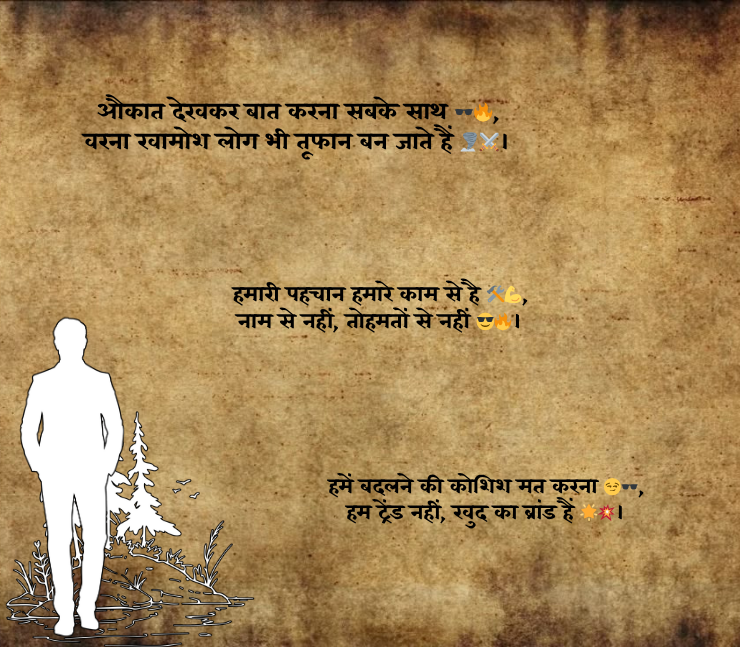 औकात देखकर बात करना सबके साथ 🕶️🔥,
वरना खामोश लोग भी तूफान बन जाते हैं 🌪️⚔️।
हमारी पहचान हमारे काम से है 🛠️💪,
नाम से नहीं, तोहमतों से नहीं 😎🔥।
हमें बदलने की कोशिश मत करना 😏🕶️,
हम ट्रेंड नहीं, खुद का ब्रांड हैं ☀️💥।